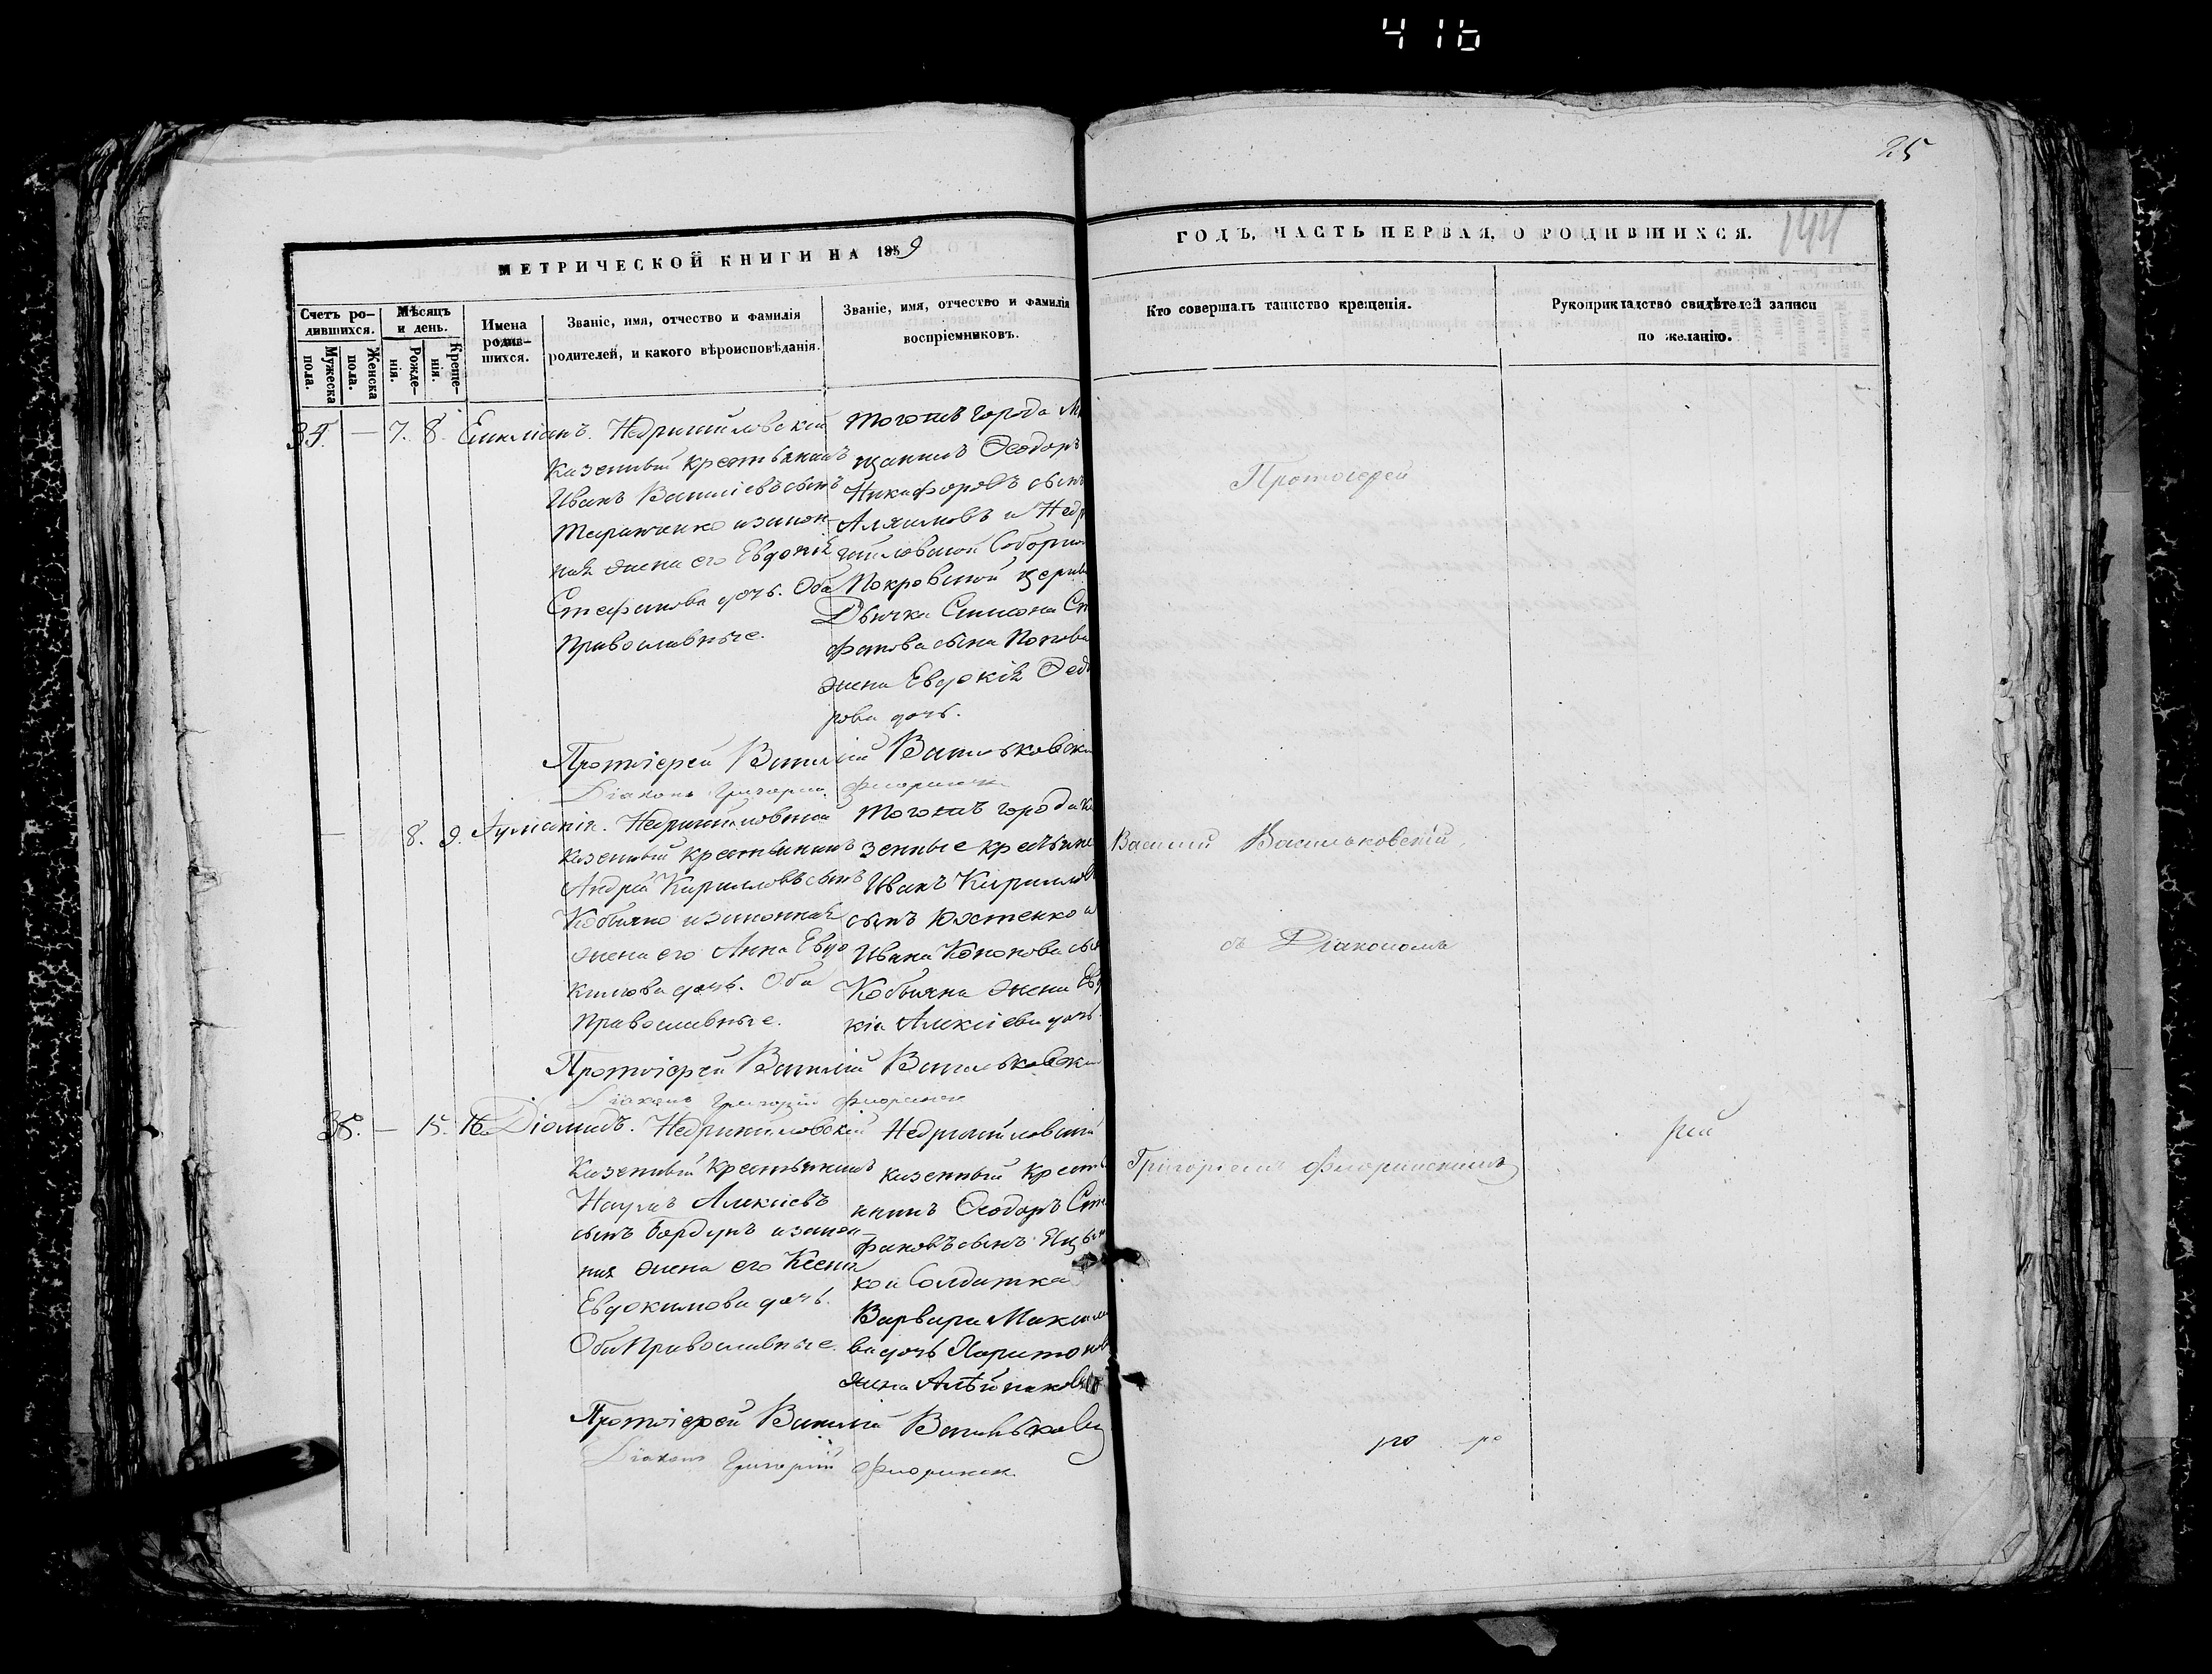 416
25
144
МЕТРИЧЕСКОЙ КНИГИ НА 1859
ГОДЪ, ЧАСТЬ ПЕРВАЯ, О РОДИВШИХСЯ.
Счетъ родившихся.
Мужеска пола.
Женска пола.
Мѣсяцъ и день.
Рожденія.
Крещенія.
Имена родившихся.
Званіе, имя, отчество и фамилія
родителей, и какого вѣроисповѣданія.
Званіе, имя, отчество и фамилія
воспріемниковъ.
Кто совершалъ таинство крещенія.
Рукоприкладство свидѣтелей записи
по желанію.
— 7. 8. Емиліанъ.
Недригайловскій
Казенный крестьянинъ
Иванъ Василіевъ сынъ
и закон
ная жена его Евдокія
Стефанова дочь. Оба
Православные.
Тогожъ города М
щанинъ Ѳеодоръ
Никифоровъ сынъ
и Недри
гайловской Соборной
Покровской церкви
Дьячка Симеона Сте
фанова сына Попова
жена Евдокія Ѳедо
рова дочь.
Протоіерей Василій Васильковскій
Діаконъ Григорій Флоринскій
— 8. 9.
Недригайловскій
Казенный крестьянинъ
Андрей Кирилловъ сынъ
Кобыляко и законная
жена его Анна Евдо
кимова дочь. Оба
Православные.
Тогожъ города Ка
зенные крестьяне
Иванъ Кирилловъ
сынъ Костенко и
Ивана Кононова сына
жена Евдо
кія Алексіева дочь
Протоіерей Василій Васильковскій
Діаконъ Григорій Флоринскій
38. — 15. 16. Діомидъ.
Недригайловскій
Казенный крестьянинъ
Наумъ Алексіевъ
сынъ Бардунъ и закон
ная жена его Ксенія
Евдокимова дочь.
Оба Православные.
Недригайловскій
казенный кресть
янинъ Ѳеодоръ Сте
фановъ сынъ
ко и Солдатка
Варвара Максимо
ва дочь Харитонова
жена
Протоіерей Василій Васильковск
Діаконъ Григорій Флоринск
Протоіерей
Василій Васильковскій,
съ Діакономъ
Григоріемъ Флоринскимъ
рей